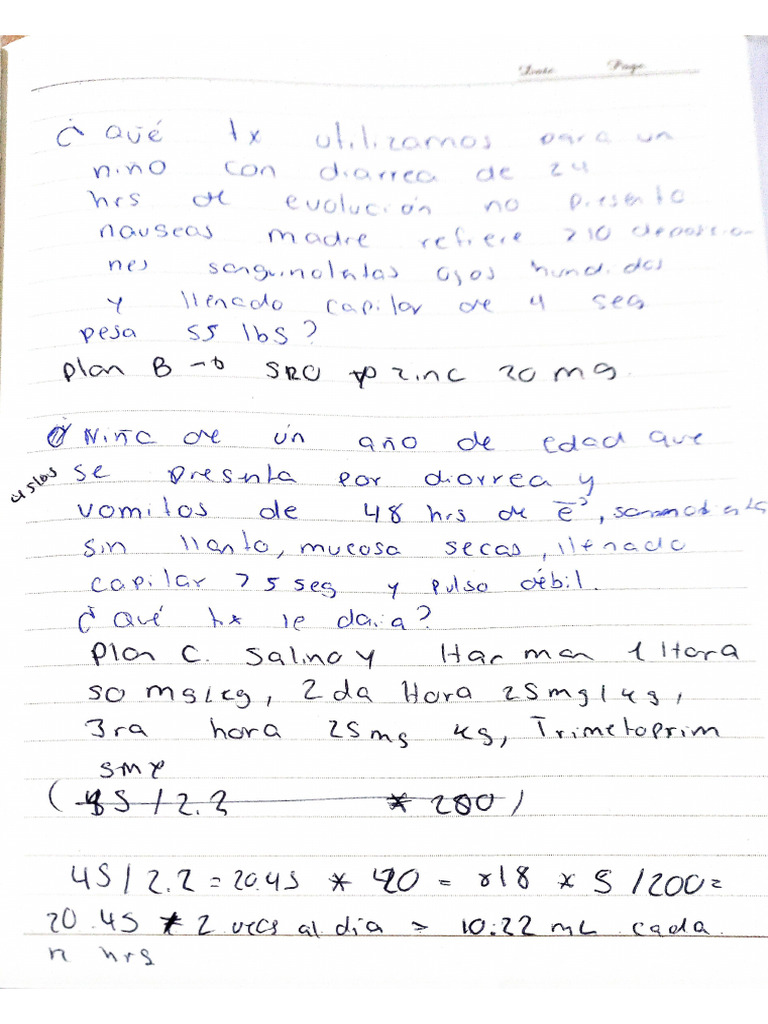 Date Page
¿Qué tx utilizamos para un
niño con diarrea de 24
hrs de evolución no presenta
nauseas madre refiere >10 deposicio
nes sanguinolentas ojos hundidos
y llenado capilar de 4 seg
pesa 55 lbs?
Plan B → SRO zinc 20 mg.
Niña de un año de edad que
45 lbs se presenta por diarrea y
vomitos de 48 hrs de e̅,
sin llanto, mucosa secas, llenado
capilar > 5 seg y pulso débil.
¿Qué tx le daria?
Plan C. Salino y Harman 1 Hora
50 mg/kg, 2 da Hora 25 mg/kg,
3ra hora 25 mg kg, Trimetoprim
smx
(45/2.2 * 200)
45/2.2 = 20.45 * 40 = 818 * 5 /200=
20.45 * 2 vecs al dia = 10.22 mL cada
hrs